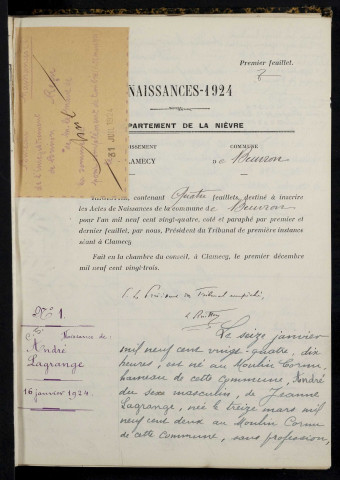 Premier feuillet.
NAISSANCES-1924
DÉPARTEMENT DE LA NIÈVRE
COMMUNE
CLAMECY
de Beuvron
contenant Quatre feuillets, destiné à inscrire
les Actes de Naissances de la commune de Beuvron
pour l'an mil neuf cent vingt-quatre, coté et paraphé par premier et
dernier feuillet, par nous, Président du Tribunal de première instance
séant à Clamecy.
Fait en la chambre du conseil, à Clamecy, le premier décembre
mil neuf cent vingt-trois.
Le seize janvier
mil neuf cent vingt-quatre, dix
heures, est né au Moulin Cornu,
hameau de cette commune, André
du sexe masculin, de Jeanne
Lagrange, née le treize mars mil
neuf cent deux au Moulin Cornu
de cette commune, sans profession,
N° 1.
Naissance de
André
Lagrange
16 janvier 1924.